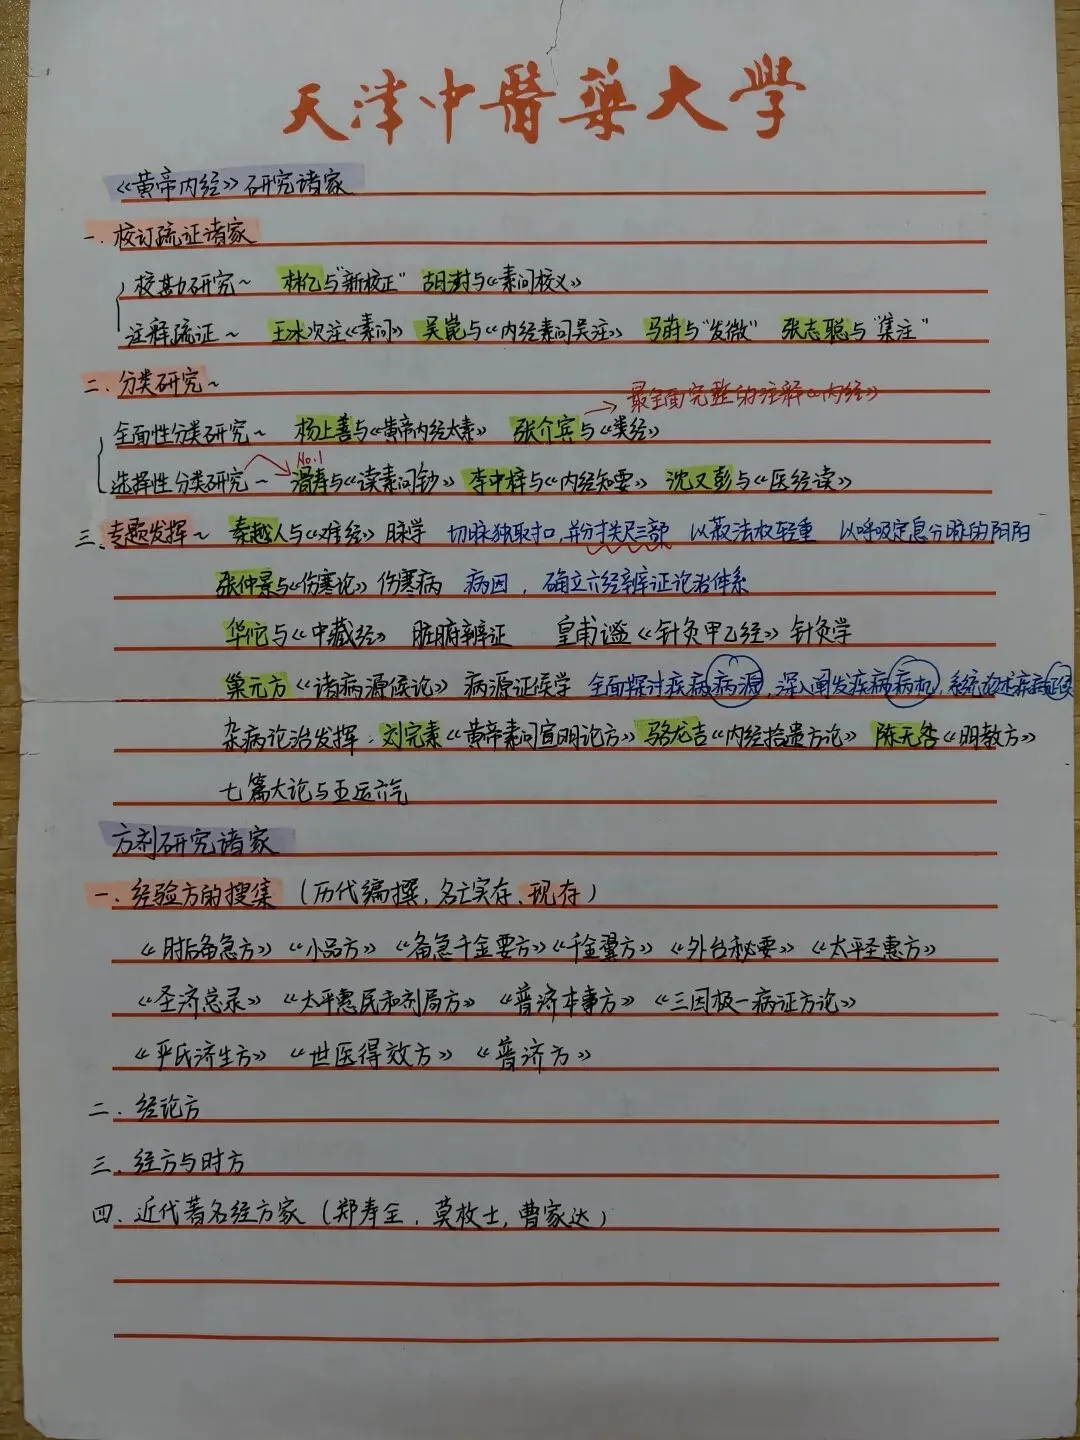 天津中醫藥大學
《黄帝内经》研究诸家
一.校订疏证诸家
校勘研究~ 林亿与"新校正" 胡澍与《素问校义》
注释疏证~ 王冰次注《素问》 吴崑与《内经素问吴注》 马莳与"发微" 张志聪与"集注"
二.分类研究~
最全面完整的注释《内经》
全面性分类研究~ 杨上善与《黄帝内经太素》 张介宾与《类经》
No.1
选择性分类研究~ 滑寿与《读素问钞》 李中梓与《内经知要》 沈又彭与《医经读》
三.专题发挥~ 秦越人与《难经》脉学 切脉独取寸口,并分寸关尺三部 以菽法权轻重 以呼吸定息分脉的阴阳
张仲景与《伤寒论》伤寒病 病因,确立六经辨证论治体系
华佗与《中藏经》 脏腑辨证 皇甫谧《针灸甲乙经》针灸学
巢元方《诸病源候论》病源证候学 全面探讨疾病病源,深入阐发疾病病机,系统论述疾病证候
杂病论治发挥:刘完素《黄帝素问宣明论方》骆龙吉《内经拾遗方论》 陈无咎《明教方》
七篇大论与五运六气
方剂研究诸家
一.经验方的搜集(历代编撰,名亡实存、现存)
《肘后备急方》《小品方》《备急千金要方》《千金翼方》《外台秘要》《太平圣惠方》
《圣济总录》《太平惠民和剂局方》《普济本事方》《三因极一病证方论》
《严氏济生方》《世医得效方》《普济方》
二.经论方
三.经方与时方
四.近代著名经方家(郑寿全,莫枚士,曹家达)